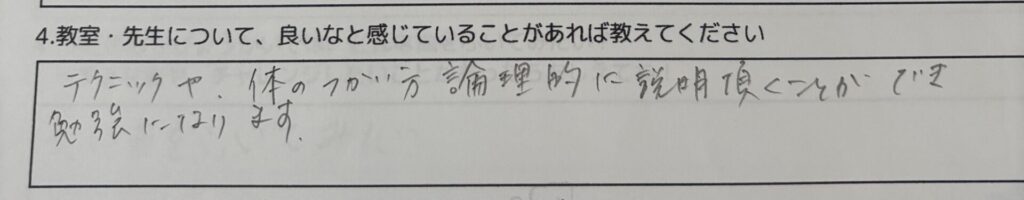 4.教室・先生について、良いなと感じていることがあれば教えてください
テクニックや、体のつかい方論理的に説明頂くことができ
勉強になります。